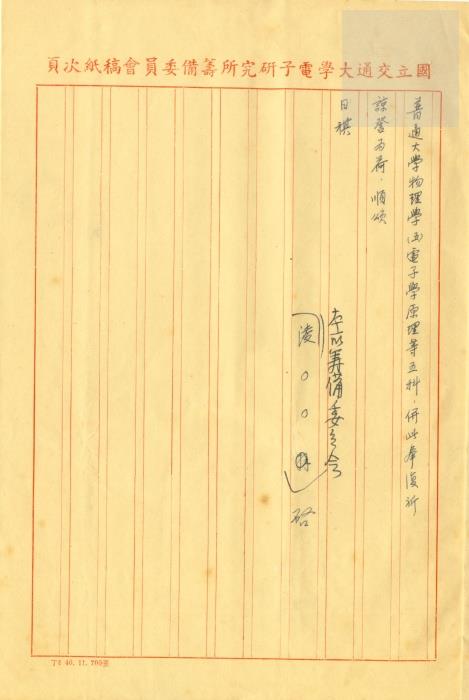 國立交通大學電子研究所籌備委員會稿紙次頁
普通大學物理學(五)電子學原理等五科,併此奉復祈
諒詧為荷.順頌
日祺
本所籌備委員会
凌○○
啓
丁2 46. 11. 700張